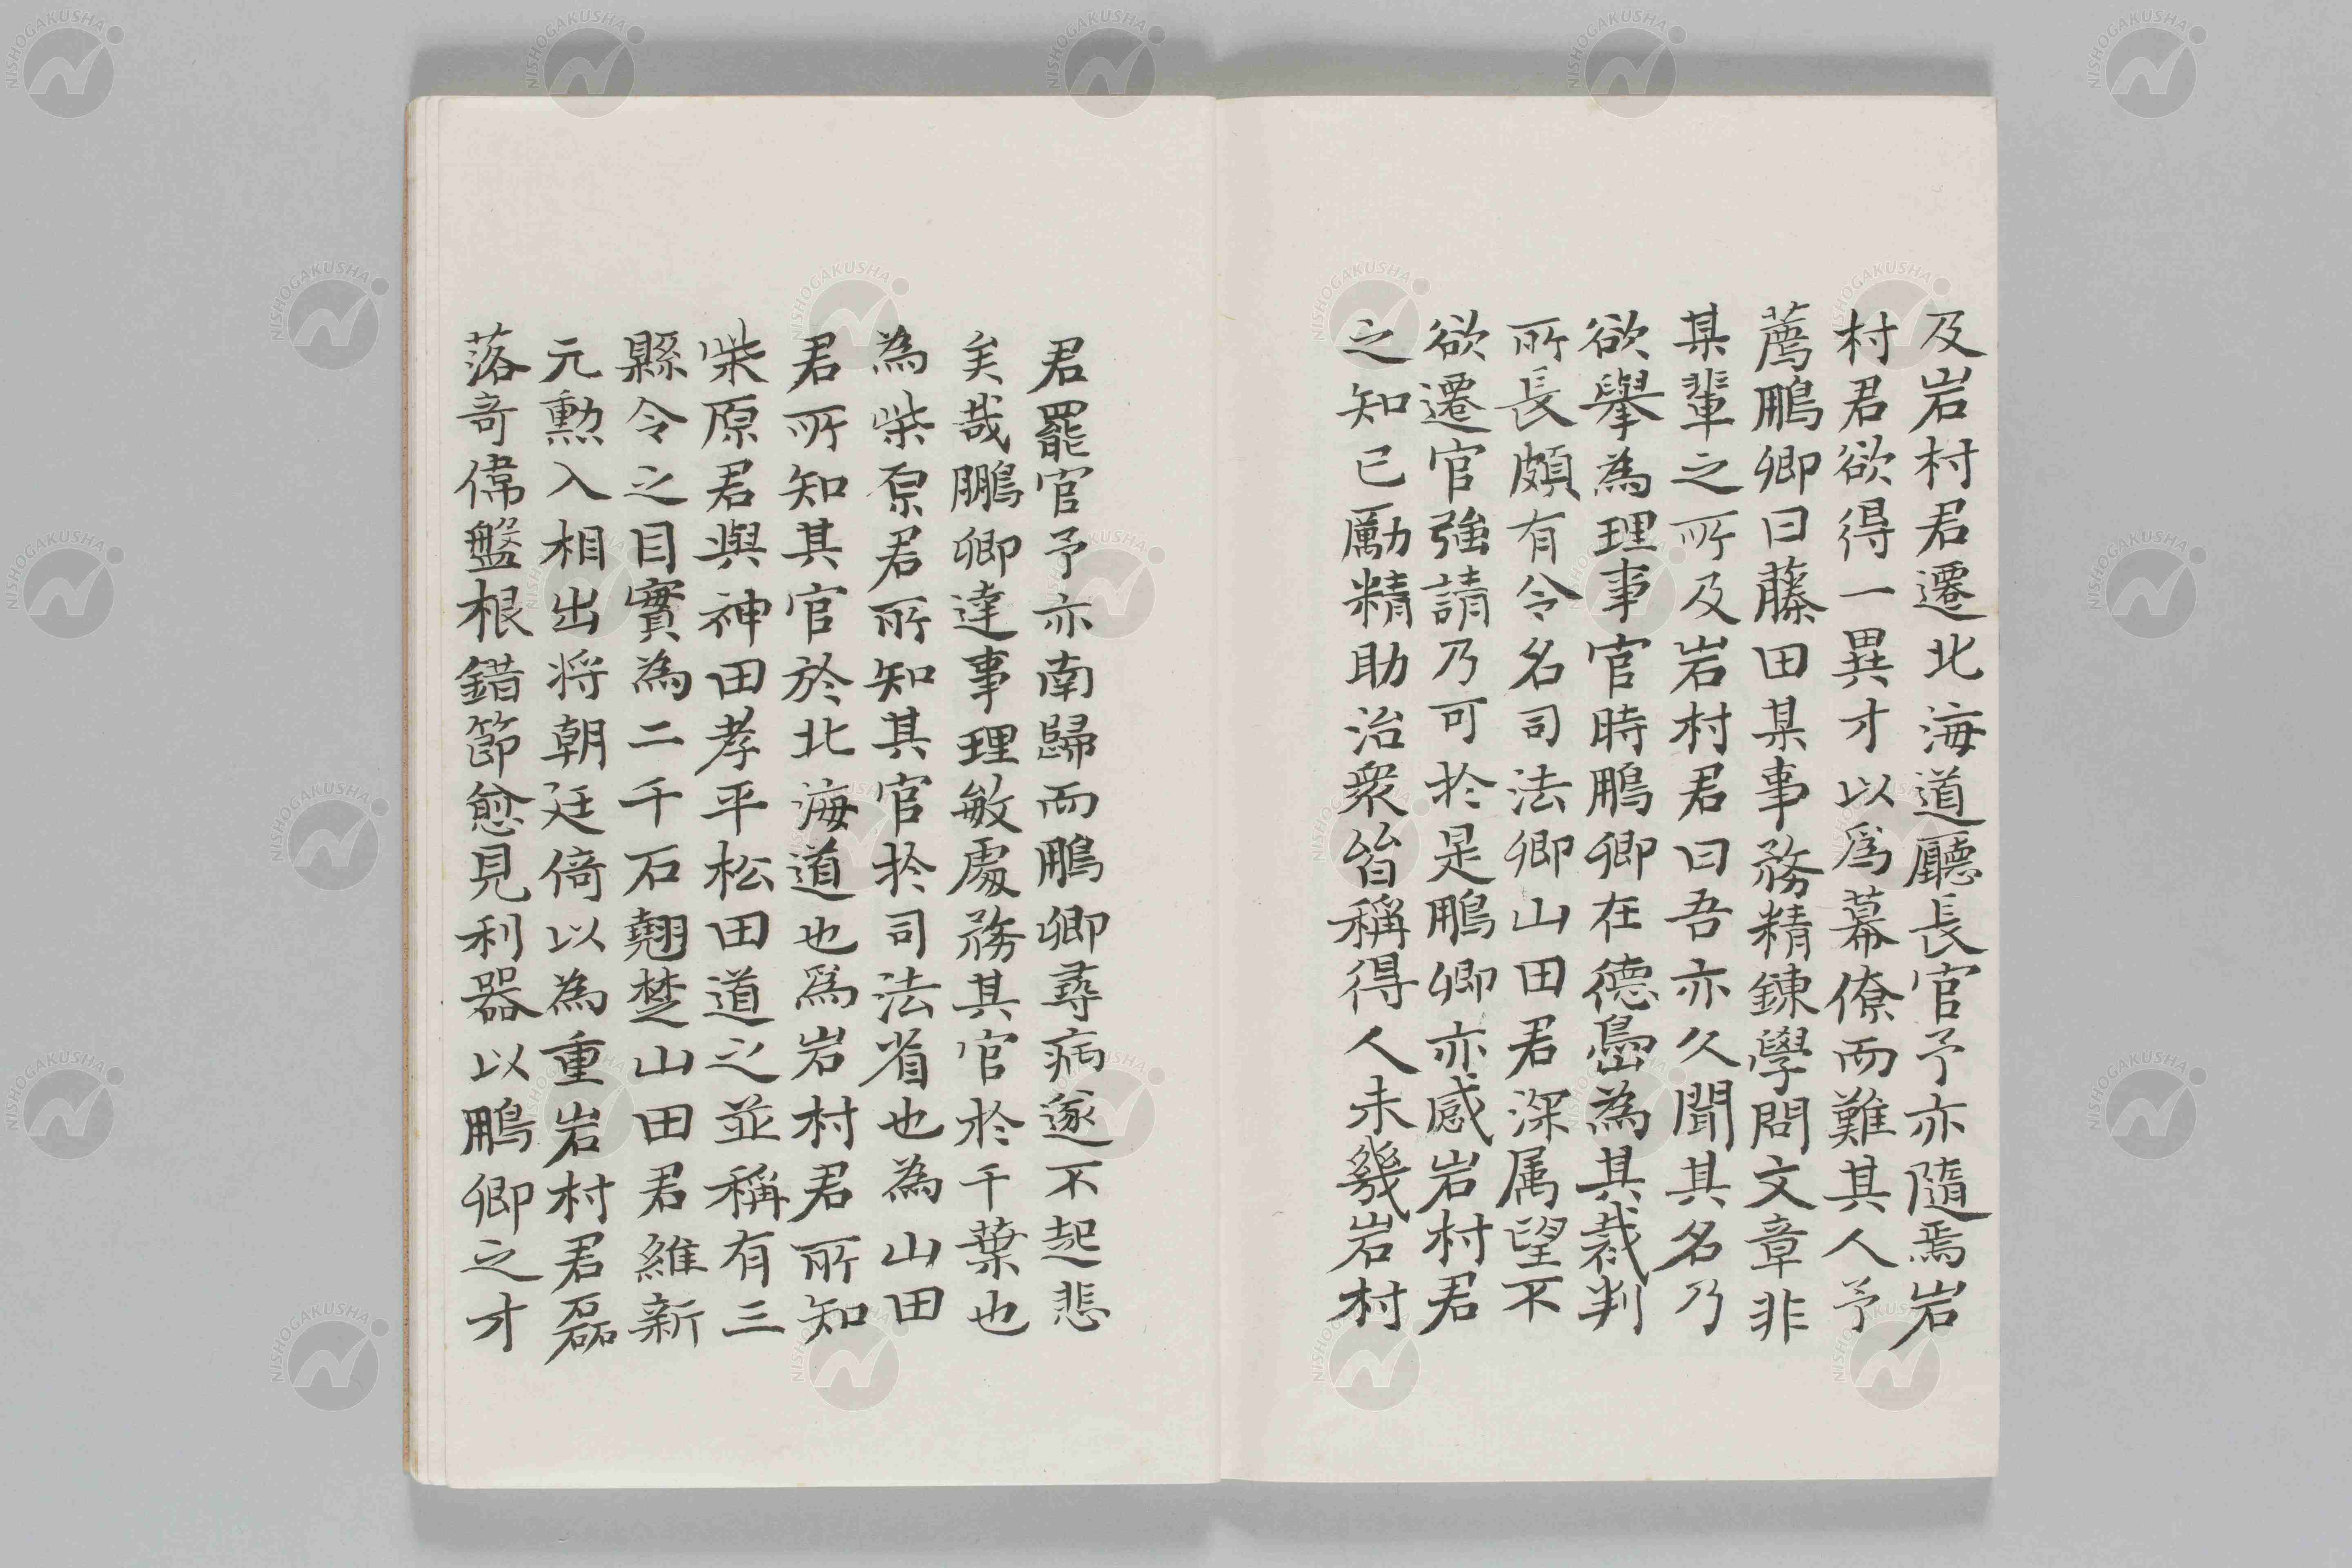 及岩村君遷北海道廳長官予亦隨焉岩
村君欲得一異才以爲幕僚而難其人予
薦鵬卿曰藤田某事務精錬學問文章非
某輩之所及岩村君曰吾亦久聞其名乃
欲擧為理事官時鵬卿在德嶌為其裁判
所長頗有令名司法卿山田君深属望不
欲遷官強請乃可於是鵬卿亦感岩村君
之知已勵精助治衆皆稱得人未幾岩村
君罷官予亦南歸而鵬卿尋病遂不起悲
矣哉鵬卿達事理敏處務其官於千葉也
為柴原君所知其官於司法省也為山田
君所知其官於北海道也爲岩村君所知
柴原君與神田孝平松田道之並稱有三
縣令之目實為二千石翹楚山田君維新
元勲入相出将朝廷倚以為重岩村君磊
落奇偉盤根錯節愈見利器以鵬卿之才
NISHOGAKUSHA